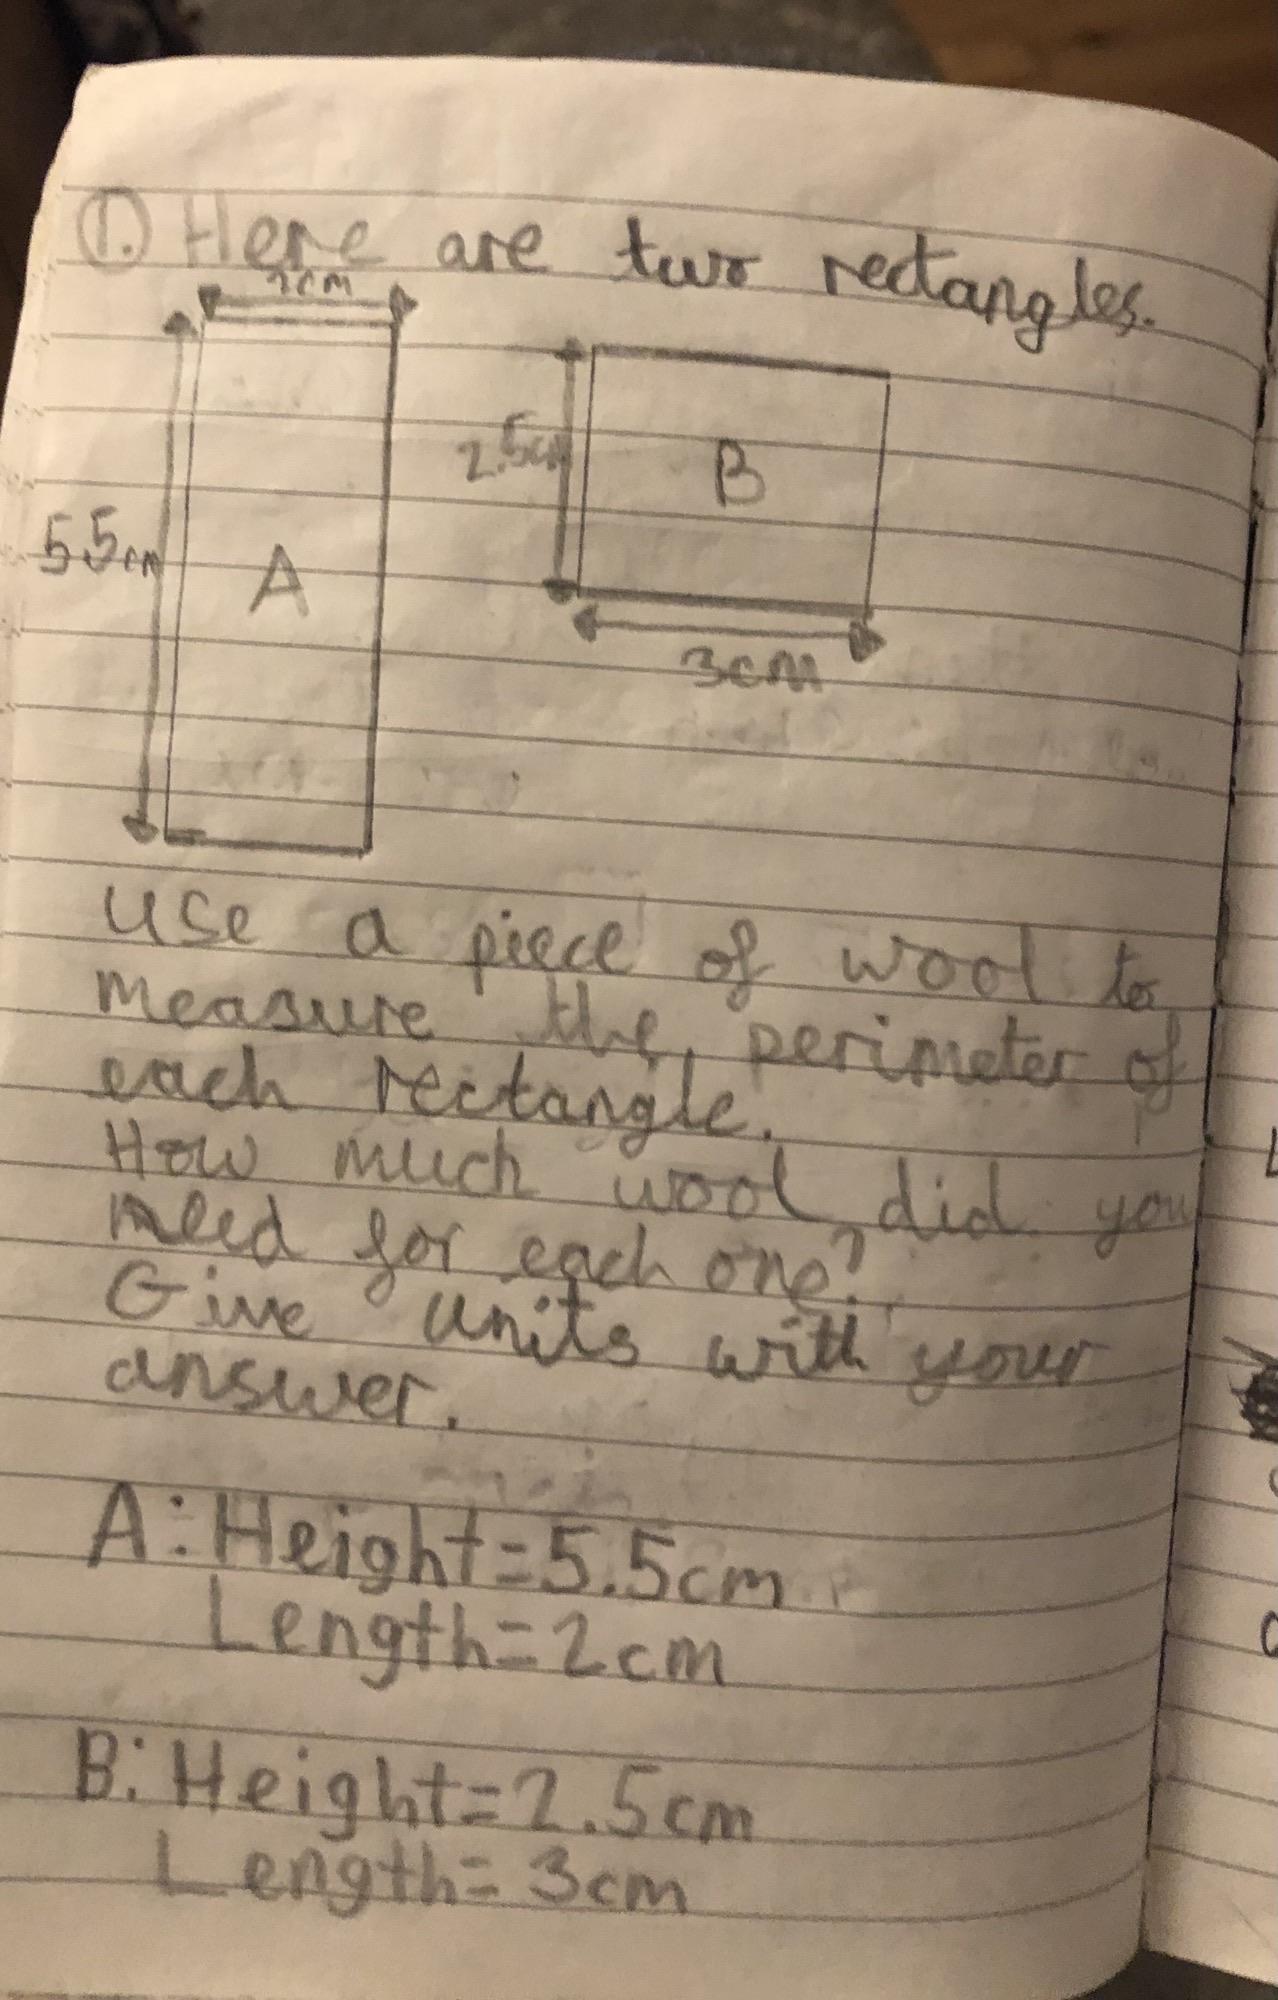 1. Here are two rectangles.
2cm
5.5cm
A
2.5cm
B
3cm
Use a piece of wool to
measure the perimeter of
each rectangle.
How much wool did you
need for each one?
Give units with your
answer.
A: Height=5.5cm
Length=2cm
B: Height=2.5cm
Length=3cm